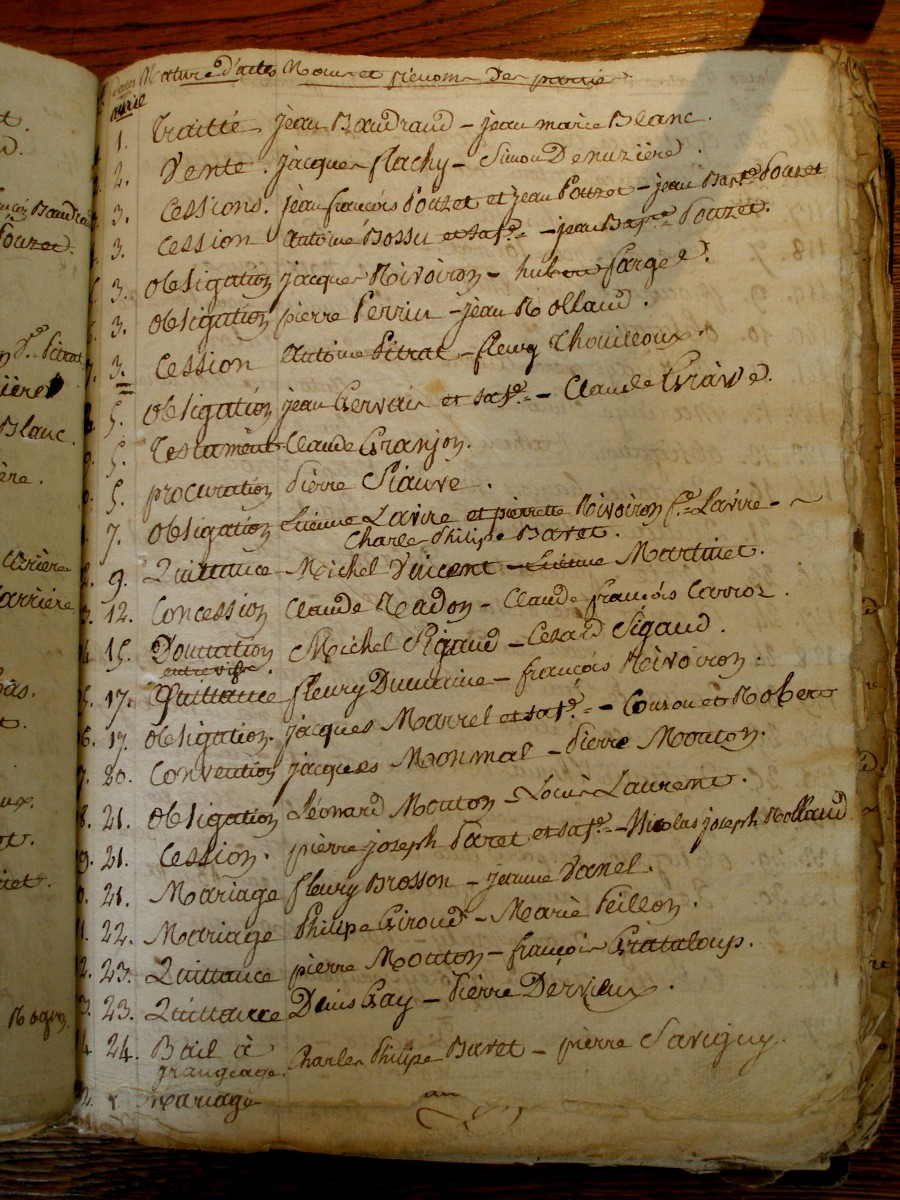 Nature d'actes Noms et prénoms des parties
avril
1. Traitté jean Baudraud - jean marie Blanc.
2. Vente. jacques flachy - Simon Denuzière.
3. Cessions. jean françois Pouzet et jean Pouzet - jean Bapte Pouzet
3. Cession antoine Bossu et sa fe - jean Bapte Pouzet.
3. obligation jacques Rivoiron - hubert farge
3. obligation pierre Perrin - jean Rolland.
3. Cession antoine Pitrat - fleury Thouilloux.
5. obligation jean Gervais et sa fe - Claude Grave.
5. Testament Claude Granjon.
5. procuration Pierre Siauve.
7. obligation Etienne Lavire et pierrette Rivoiron fe Lavire -
Charles Philipe Baret.
9. Quittance Michel Vincent - Etienne Martinet.
12. Concession Claude Nadon - Claude françois Carrot.
15. Donnation Michel Rigaud - Cezard Sigaud.
entre vifs.
17. Quittance fleury Dumaine - françois Rivoiron.
17. obligation. jacques Marrel et sa fe - Couson et Robert
20. Convention jacques Monmal - Pierre Mouton.
21. obligation Léonard Mouton - Louis Laurent.
21. Cession. pierre joseph Paret et sa fe - Nicolas joseph Rolland
21. Mariage fleury Brosson - jeanne Vanel.
22. Mariage Philipe Giroud - Marie Peillon.
23. Quittance pierre Mouton - françois Grataloup.
23. Quittance Denis Gay - Pierre Dervieux.
24. Bail à Charles Philipe Baret - pierre Savigny.
grangeage.
mariage